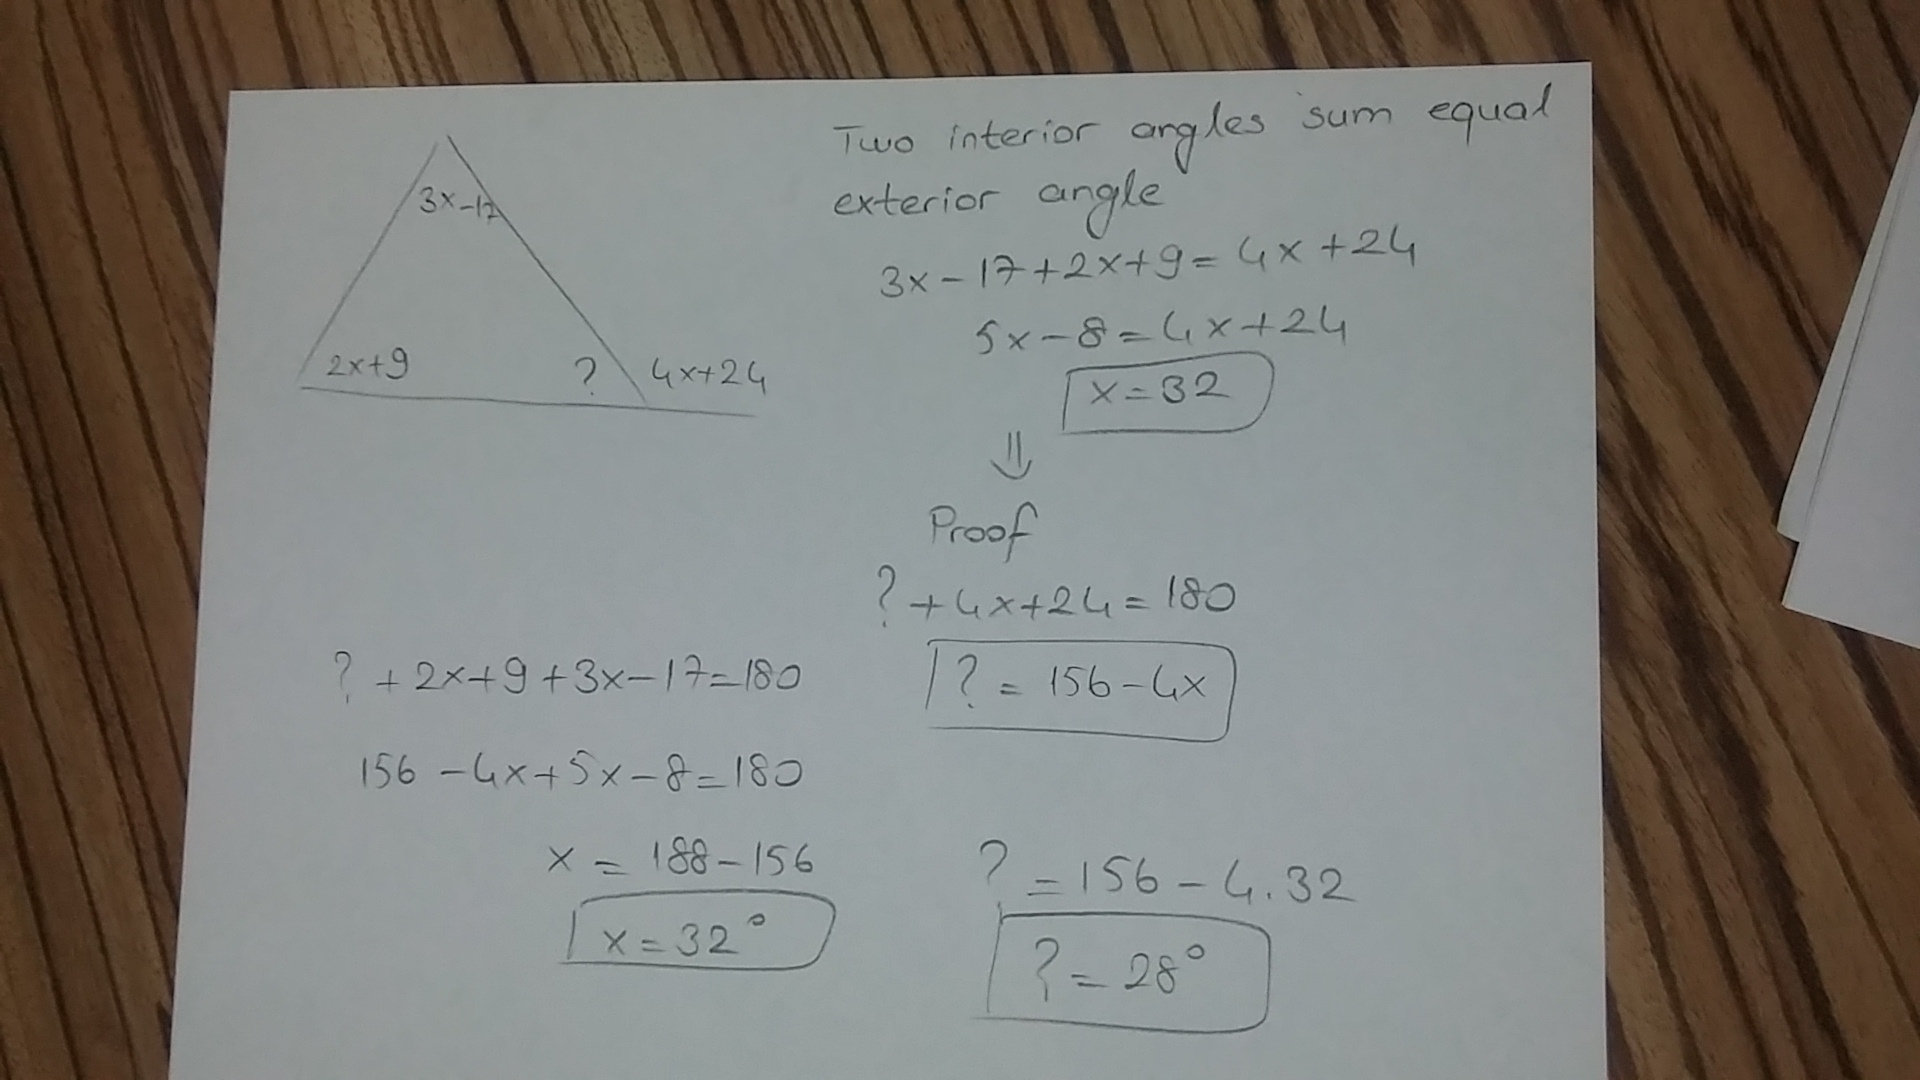 3x-17
2x+9
?
4x+24
Two interior angles sum equal
exterior angle
3x-17+2x+9=4x+24
5x-8=4x+24
x=32
⇓
Proof
?+4x+24=180
?=156-4x
?+2x+9+3x-17=180
156-4x+5x-8=180
x=188-156
x=32°
?=156-4.32
?=28°